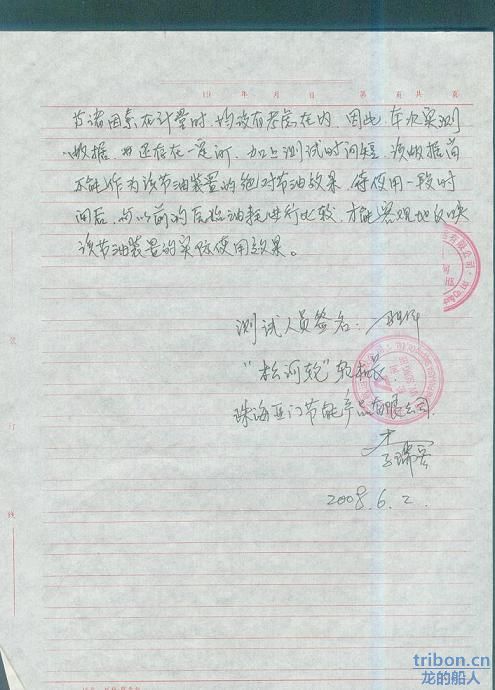 19 年 月 日 第 页 共 页
等诸因素在计量时,均没有考虑在内,因此,本次实测
数据 还存在一定 ,加上测试时间短,该数据尚
不能作为该节油装置的绝对节油效果,待使用一段时
间后,与以前的 油耗进行比较,才能客观地反映
该节油装置的实际使用效果。
测试人员签名:
“松河轮”轮机长
珠海亚门节能产品有限公司
2008.6.2.
装
订
线
tribon.cn
龙的船人